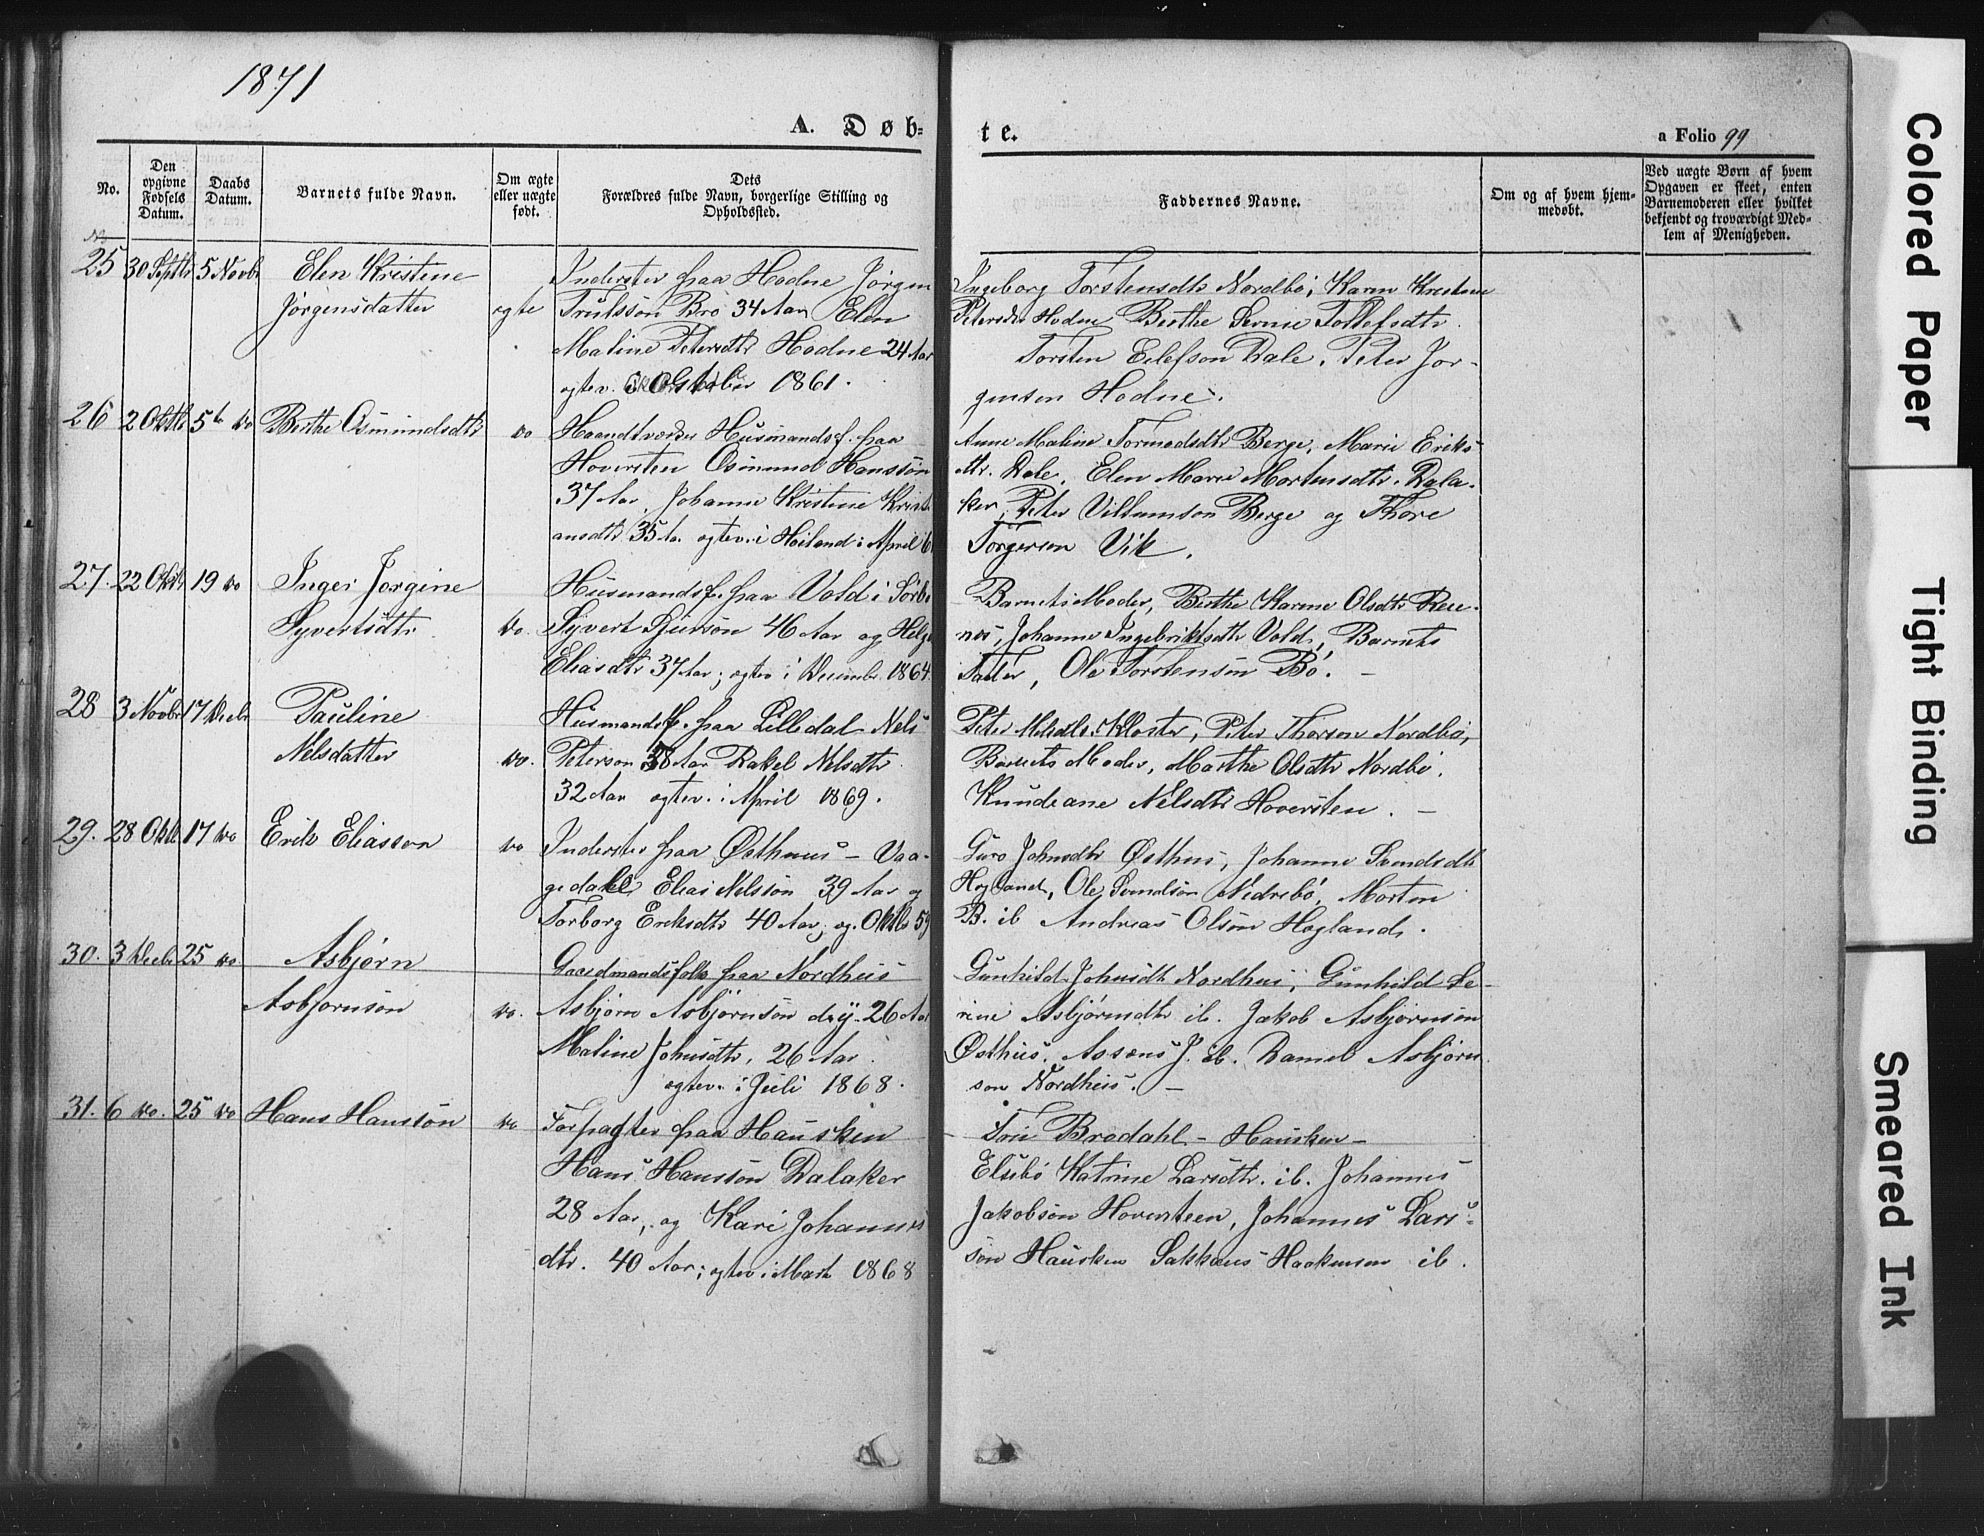 1871
A. Døb=
te.
a Folio 99
No.
Den opgivne Fødsels Datum.
Daabs Datum.
Barnets fulde Navn.
Om ægte eller uægte født.
Dets Forældres fulde Navn, borgerlige Stilling og Opholdssted.
Faddernes Navne.
Om og af hvem hjemmedøbt.
Ved uægte Børn af hvem Opgaven er skeet, enten Barnemoderen eller hvilket bekjendt og troværdigt Medlem af Menigheden.
No
25 30 Septbr 5 Novbr Elen Kristine
Jørgensdatter ægte
Inderster fraa Hodne Jørgen
Trulsson Bro 34 Aar Elen
Maline Petersdtr Hodne 24 Aar
ægtev. Oktober 1861.
Ingeborg Torstensdtr Nordbö, Karen Kristine
Petersdtr Hodne Berthe Serine Tollefsdtr
Torsten Eilefson Dale, Peter Jør-
gensen Hodne.
26 2 Oktbr 5te do Berthe Osmundsdtr do
Haandtværker Husmandsf. fraa
Hoversten Osmund Hanssön
37 Aar, Johanne Kristine Kristi
ansdtr 35 Aar ægtev. i Høiland i April
Anne Maline Tormodsdtr Berge, Marie Eriks-
dtr. Dale, Elen Marie Mortensdtr. Dala-
ker, Peter Villumson Berge og Thore
Torgerson Vik.
27. 22 Oktbr 19 do Inger Jørgine
Syvertsdtr do.
Husmandsf. fraa Vold i Sörbö
Syvert Sjursön 46 Aar og Helga
Eliasdtr 37 Aar; ægtev i Decembr. 1864.
Barnets Moder, Berthe Karine Olsdtr Ren-
nes, Johanne Ingebriktsdtr Vold, Barnets
Fader, Ole Torstensön Bö. —
28 3 Novbr 17 Decbr Pauline
Nelsdatter do.
Husmandsf. fraa Lilledal Nels
Peterson 38 Aar Rakel Nelsdtr
32 Aar ægtev. i April 1869.
Peter Kloster, Peter Thorson Nordbö,
Barnets Moder, Marthe Olsdtr Nordbö.
Knudeane Nelsdtr Hoversten. —
29. 28 Oktbr 17 do Erik Eliasson do
Inderster fraa Østhuus — Vaa-
gedal Elias Nelssön 39 Aar og
Torborg Eriksdtr 40 Aar; æg. Oktbr 59
Guro Johnsdtr Østhus, Johanne Svendsdtr
Hogland, Ole Svendsön Nedrebö, Morten
B. ib Andreas Olsön Hogland.
30. 3 Decbr 25 do. Asbjørn
Asbjornsön do.
Gaardmandsfolk fraa Nordhus
Asbjørn Asbjørnsön d.y. 26 Aar
Maline Johnsdtr. 26 Aar.
ægtev. i Juli 1868.
Gunhild Johnsdtr Nordhus, Gunhild Se-
rine Asbjörnsdtr ib. Jakob Asbjörnsön
Østhus. Assens J. ib. Daniel Asbjörn
son Nordhus. —
31. 6 do. 25 do Hans Hanssön do
Forpagter fraa Hausken
Hans Hanssön Dalaker
28 Aar, og Kari Johannes
dtr. 40 Aar; ægtev i Marts 1868
— Brodahl — Hausken —
Elsebö Katrine Larsdtr. ib. Johannes
Jakobsön Hoversteen, Johannes Lars-
sön Hausken Sakkæus Haakensen ib.
Colored Paper
Tight Binding
Smeared Ink